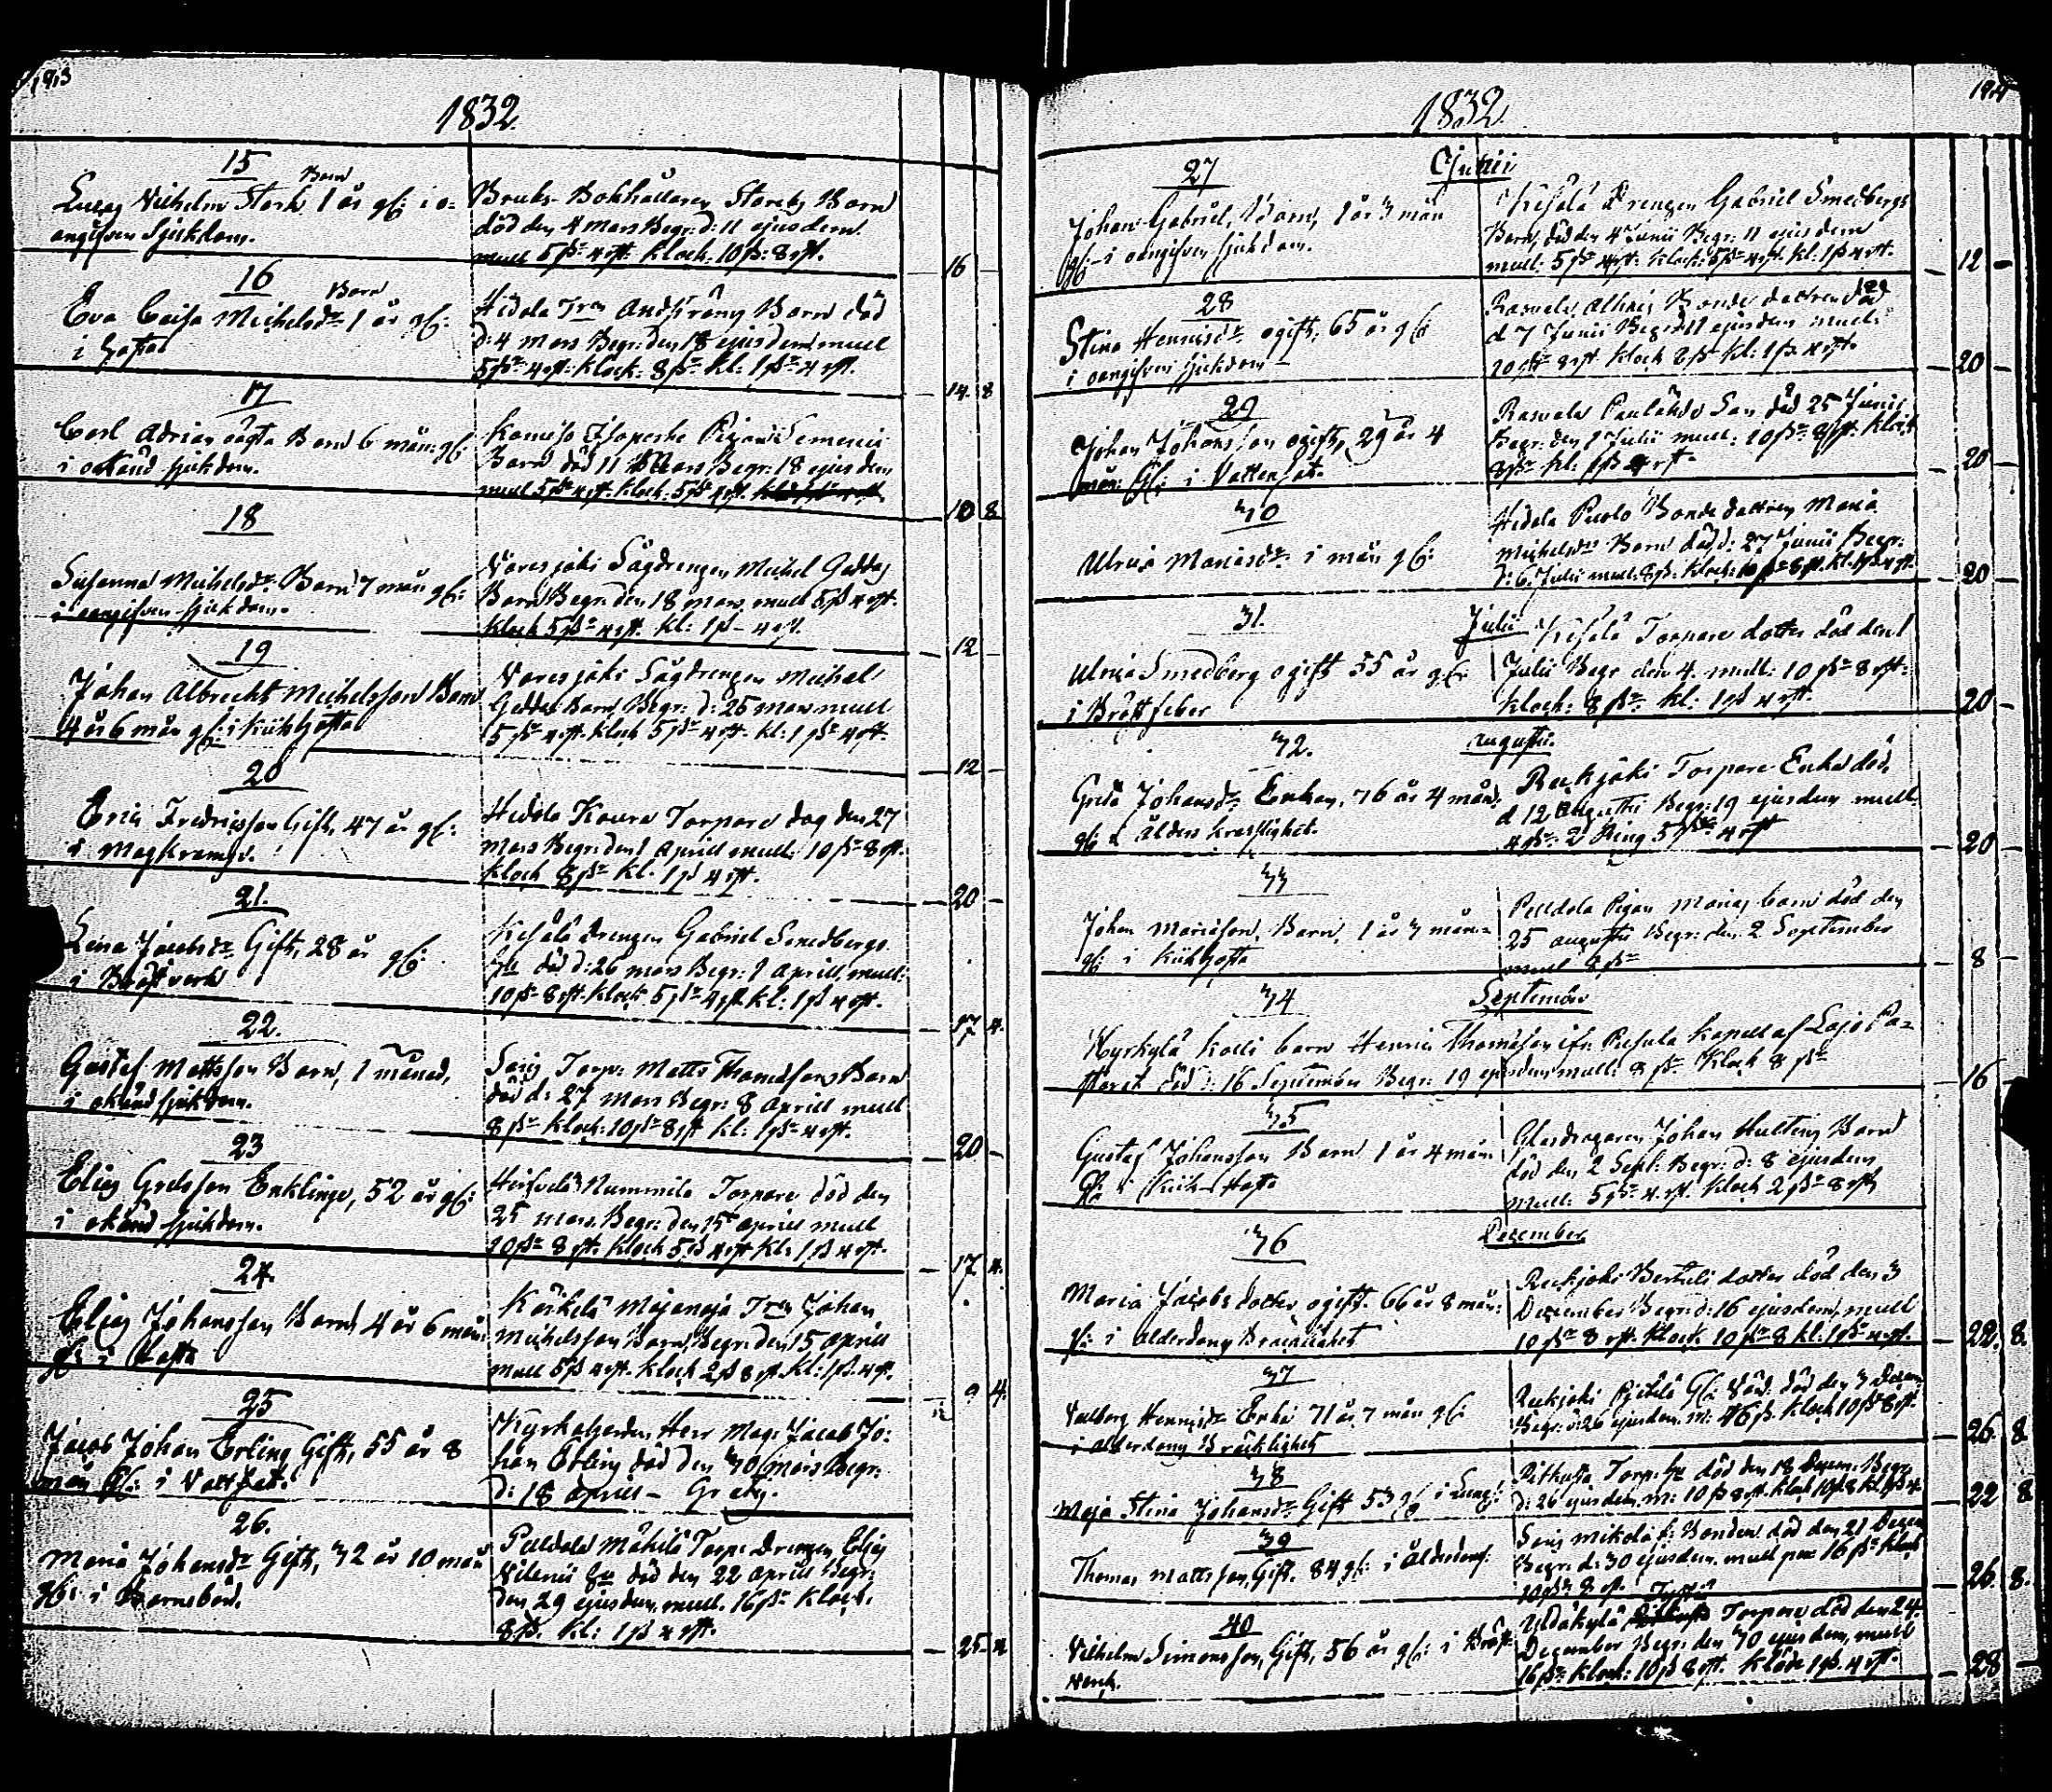 193
1832
15
Barn
Lucas Vilhelm Stork 1 år gl: i o-
angifven Sjukdom.
Bruks-Bokhållaren Storks Barn
död den 4 Mars Begr: d: 11 ejusdem.
mull 5 ß 4 rst. klock: 10 ß: 8 rst.
16 —
16
Barn
Eva Caisa Michelsdr 1 år gl:
i hosta
Hidola Trn Barn död
d: 4 Mars Begr: den 18 ejusdem mull
5 ß 4 rst. klock: 8 ß kl: 1 ß 4 rst.
14 8
17
Carl Adrian oägta Barn 6 mån: gl:
i okänd sjukdom.
Pigans
Barn död 11 Mars Begr: 18 ejusdem
mull 5 ß 4 rst. klock. 5 ß 4 rst.
10 8
18
Susanna Michelsdr Barn 7 mån gl:
i oangifven sjukdom.
Varesjoki Sågdrengen Michel Geddas
Barn Begr: den 18 Mars mull 5 ß 4 rst.
klock 5 ß 4 rst. kl: 1 ß - 4 rst.
12 —
19
Johan Albrecht Michelsson Barn
4 år 6 mån gl: i Kikhosta
Varesjoki Sågdrengen Michel
Geddas Barn, Begr: d: 25 Mars mull
5 ß 4 rst. klock 5 ß 4 rst. kl: 1 ß 4 rst.
12 —
20
Eric Fredricsson Gift, 47 år gl:
i Magkramp.
Hidola Torpare den 27
Mars Begr: den 1 Aprill mull: 10 ß 8 rst.
klock 8 ß kl. 1 ß 4 rst.
20 —
21.
Lena Jacobsdr Gift, 28 år gl:
i Bröstverk
Kesälä drengen Gabriel Smedbergs
hu död d: 26 Mars Begr: 1 Aprill, mull:
10 ß 8 rst. klock 5 ß 4 rst kl: 1 ß 4 rst.
17 4.
22.
Gustaf Mattsson Barn, 1 månad,
i okänd sjukdom.
Torp: Matts Thomassons Barn
död d: 27 Mars Begr: 8 Aprill mull
8 ß klock: 10 ß 8 rst kl: 1 ß 4 rst.
20 —
23
Elias Grelsson Enkling, 52 år gl:
i okänd sjukdom.
Hirsilä Nummila Torpare död den
25 Mars Begr: den 15 Aprill mull
10 ß 8 rst. klock 5 ß 4 rst kl: 1 ß 4 rst.
17 4.
24.
Elias Johansson Barn 4 år 6 mån:
gl: i hosta
Kärkelä Majanoja Trn Johan
Michelsson Barn, Begr: den 15 Aprill
mull 5 ß 4 rst. klock 2 ß 8 rst. kl: 1 ß. 4 rst.
9 4.
25
Jacob Johan Erling Gift, 55 år 8
mån gl: i Vattsot.
Kyrkoherden Herr Mag: Jacob Jo-
han Erling död den 30 Mars Begr:
d: 18 Aprill — Gratis.
26.
Maria Johansdr Gift, 32 år 10 mån
gl: i Barnsbörd.
Pelldola Mahila Torp: Drengen Elias
Vilenii hu död den 22 Aprill Begr:
den 29 ejusdem. mull. 16 ß klock.
8 ß. kl: 1 ß 4 rst.
25 4
194
1832
Junii
27
Johan Gabriel, Barn, 1 år 3 mån
gl: i oangifven sjukdom.
Kesälä Drengen Gabriel Smedbergs
Barn, död den 4 Junii Begr: 11 ejusdem
mull: 5 ß 4 rst. klock: 5 ß 4 rst. kl: 1 ß 4 rst.
12 —
28
Stina Henricsdr ogift, 65 år gl:
i oangifven sjukdom —
Rasvala Bonde dottren död
d 7 Junii Begr: d 11 ejusdem mull:
10 ß 8 rst. klock 8 ß kl: 1 ß 4 rst.
20 —
29
Johan Johansson ogift, 29 år 4
mån: gl: i Vattensot.
Rasvala Son död 25 Junii
Begr: den 1 Julii mull: 10 ß 8 rst. klock
8 ß kl: 1 ß 4 rst.
20 —
30
Ulrica Mariasdr 1 mån gl:
Hidola Bonde dottren Maria
Michelsdr Barn död d: 27 Junii Begr:
d: 6 Julii mull: 8 ß. klock: 10 ß 8 rst. kl: 1 ß 4 rst.
20 —
31.
Julii
Ulrica Smedberg ogift 55 år gl:
i Bröstfeber
Kesälä Torpare dotter död den 1
Julii Begr den 4. mull: 10 ß 8 rst:
klock: 8 ß. kl: 1 ß 4 rst.
20 —
32.
Augusti.
Greta Johansdr Enkan, 76 år 4 mån:
gl: i Ålders kraftlöshet.
Reckjoki Torpare Enka död
d 12 Augusti Begr: 19 ejusdem mull
4 ß. 2 Ring 5 ß 4 rst
20 —
33
Johan Mariason, Barn, 1 år 3 mån:
gl: i Kikhosta
Pelldola Pigan Marias barn död den
25 Augusti Begr: den 2 September
mull 8 ß
8 —
34
September
Kyrkylä barn Henric Thomasson ifr. Pusula Kapell af Lojo Pa-
storat död d: 16 September Begr: 19 ejusdem mull: 8 ß. klock 8 ß
16 —
35
Gustaf Johansson Barn 1 år 4 mån:
gl: i Kik-Hosta
Glasdragaren Johan Hultins Barn
död den 2 Sept: Begr: d: 8 ejusdem
mull: 5 ß 4 rst. klock 2 ß 8 rst,
36
December
Maria Jacobs dotter, ogift. 66 år 8 mån:
gl: i Ålderdoms Bräcklighet
Reckjoki Bertuli dotter död den 3
December Begr: d: 16 ejusdem, mull
10 ß 8 rst. klock 10 ß 8 kl: 1 ß 4 rst.
22. 8.
37
Valborg Henricsdr Enka 71 år 7 mån gl:
i Ålderdoms Bräcklighet
Reckjoki död den 3 Decem
Begr: d: 26 ejusdem. m: 16 ß. klock 10 ß 8 rst.
26. 8
38
Maja Stina Johansdr Gift 53 gl: i
Torp: hu död den 18 Decem. Begr:
d: 26 ejusdem, m: 10 ß 8 rst. klock 10 ß 8 kl. 1 ß 4
22 8
39
Thomas Mattsson, Gift. 84 gl: i Ålderdom:
Mikola f: Bonden död den 21 Decem
Begr: d: 30 ejusdem. mull 16 ß klock
10 ß 8 rst.
26. 8.
40
Vilhelm Simonsson, Gift, 56 år gl: i Bröst-
verk.
Yldäkylä Torpare död den 24.
December Begr: den 30 ejusdem, mull
16 ß klock: 10 ß 8 rst. Kläde 1 ß. 4 rst.
28